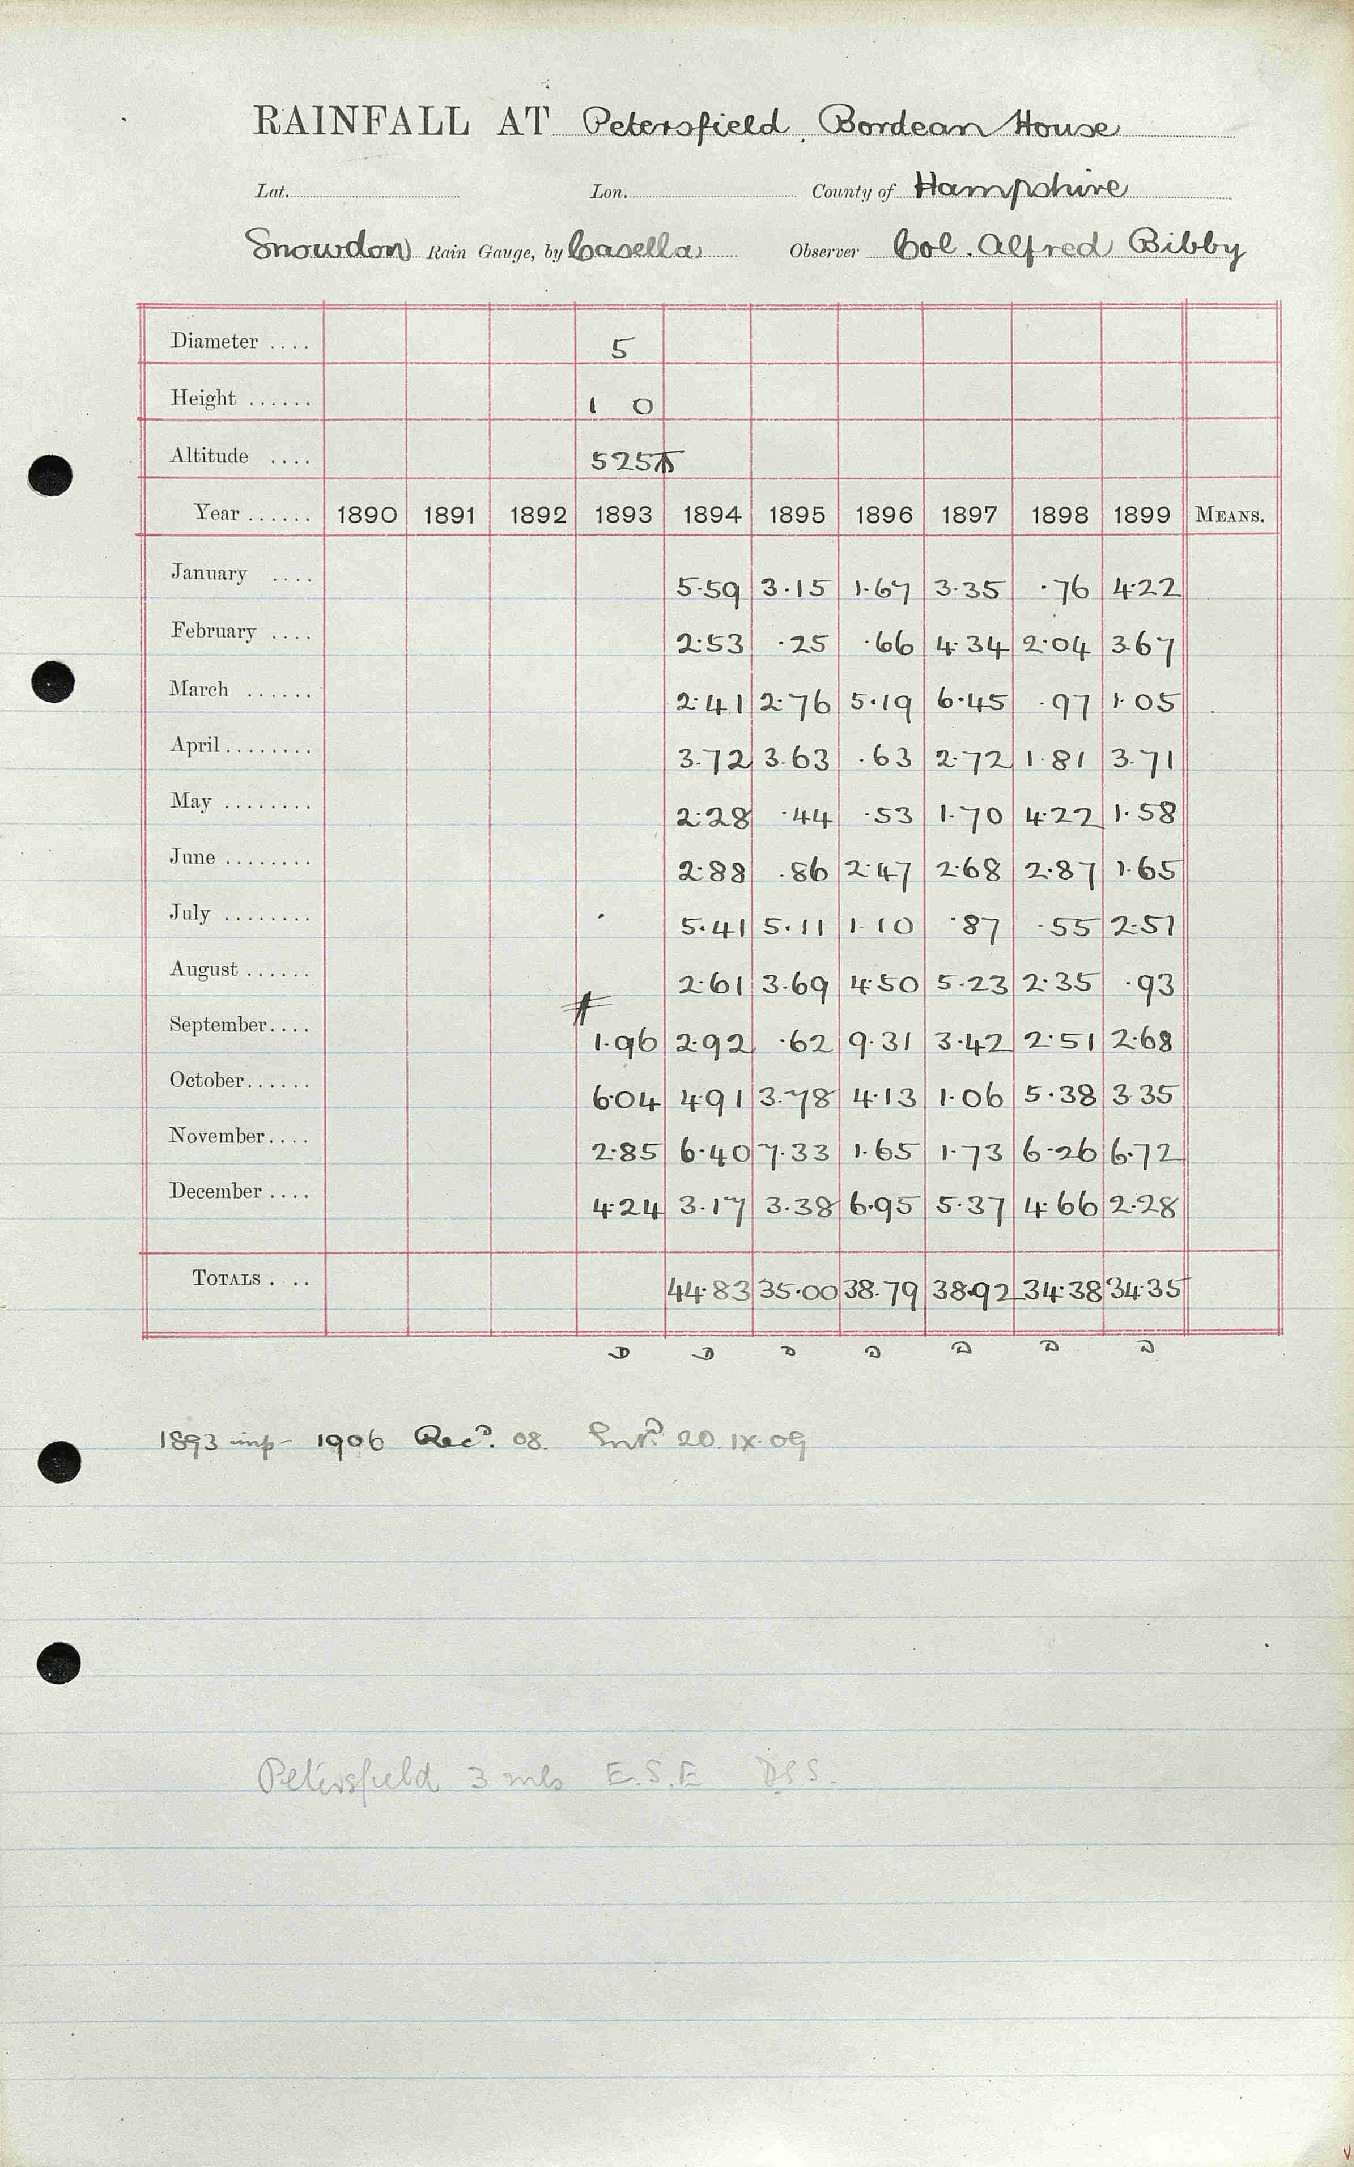 RAINFALL AT Petersfield. Bordean House
Lat. Lon. County of Hampshire
Snowdon Rain Gauge, by Casella Observer Col. Alfred Bibby
Diameter .... 5
Height ...... 1 0
Altitude .... 525
Year ...... 1890 1891 1892 1893 1894 1895 1896 1897 1898 1899 MEANS.
January .... 5.59 3.15 1.67 3.35 .76 4.22
February .... 2.53 .25 .66 4.34 2.04 3.67
March ...... 2.41 2.76 5.19 6.45 .97 1.05
April ........ 3.72 3.63 .63 2.72 1.81 3.71
May ........ 2.28 .44 .53 1.70 4.22 1.58
June ........ 2.88 .86 2.47 2.68 2.87 1.65
July ........ 5.41 5.11 1.10 .87 .55 2.51
August ...... 2.61 3.69 4.50 5.23 2.35 .93
September.... 1.96 2.92 .62 9.31 3.42 2.51 2.68
October...... 6.04 4.91 3.78 4.13 1.06 5.38 3.35
November.... 2.85 6.40 7.33 1.65 1.73 6.26 6.72
December .... 4.24 3.17 3.38 6.95 5.37 4.66 2.28
TOTALS . .. 44.83 35.00 38.79 38.92 34.38 34.35
D D D D D D D
1893 imp - 1906 Recd. 08. Entd. 20.IX.09
Petersfield 3 mls E.S.E